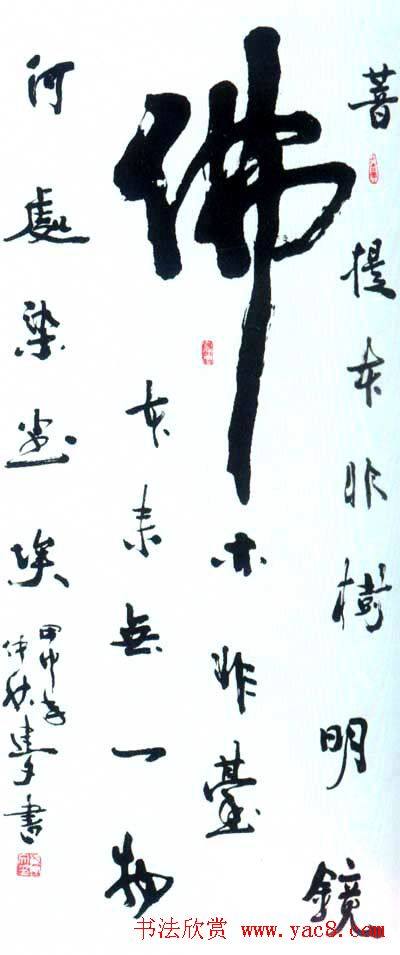 菩提本非樹明鏡
佛
亦非臺
本来無一物
何處染尘埃
甲申年
仲秋建書
书法欣赏 www.yac8.com